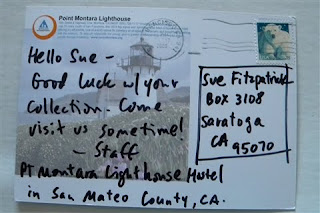 Point Montara Lighthouse
Hello Sue -
Good Luck w/ your
collection. Come
visit us sometime!
- Staff
PT Montara Lighthouse Hostel
in San Mateo County, CA.
Sue Fitzpatrick
BOX 3108
Saratoga
CA
95070